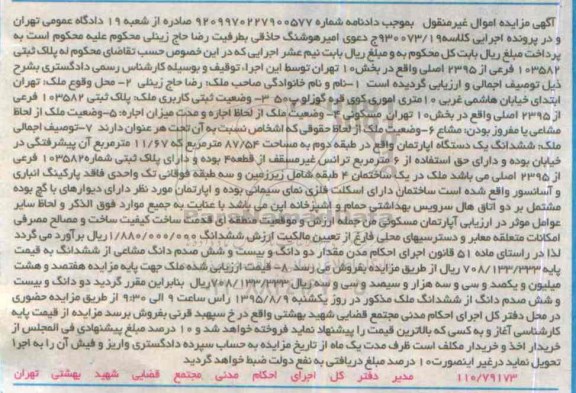 آگهی مزایده اموال غیرمنقول بموجب دادنامه شماره ۹۲۰۹۹۷۰۲۲۷۹۰۰۵۷۷ صادره از شعبه ۱۹ دادگاه عمومی تهران
و در پرونده اجرایی کلاسه ۹۳۰۰۷۳/۱۹ج دعوی امیرهوشنگ حاذقی بطرفیت رضا حاج زینلی محکوم علیه محکوم است به
پرداخت مبلغ ریال بابت کل محکوم به و مبلغ ریال بابت نیم عشر اجرایی که در این خصوص حسب تقاضای محکوم له پلاک ثبتی
۱۰۳۵۸۲ فرعی از ۲۳۹۵ اصلی واقع در بخش۱۰ تهران توسط این اجرا، توقیف و بوسیله کارشناس رسمی دادگستری بشرح
ذیل توصیف اجمالی و ارزیابی گردیده است ۱-نام و نام خانوادگی صاحب ملک: رضا حاج زینلی ۲- محل وقوع ملک: تهران
ابتدای خیابان هاشمی غربی ۱۰متری اموری کوی قره گوزلو پ۵۰ ۳- وضعیت ثبتی کاربری ملک: پلاک ثبتی ۱۰۳۵۸۲ فرعی
از ۲۳۹۵ اصلی واقع در بخش۱۰ تهران مسکونی ۴- وضعیت ملک از لحاظ اجاره و مدت میزان اجاره: ۵-وضعیت ملک از لحاظ
مشاعی یا مفروز بودن: مشاع ۶-وضعیت ملک از لحاظ حقوقی که اشخاص نسبت به آن تحت هر عنوان دارند ۷-توصیف اجمالی
ملک: ششدانگ یک دستگاه اپارتمان واقع در طبقه دوم به مساحت ۸۷/۵۴ مترمربع که ۱۱/۶۷ مترمربع آن پیشرفتگی در
خیابان بوده و دارای حق استفاده از ۶ مترمربع ترانس غیرمسقف از قطعه۴ بوده و دارای پلاک ثبتی شماره۱۰۳۵۸۲ فرعی
از ۲۳۹۵ اصلی می باشد ملک در یک ساختمان ۴ طبقه شامل زیرزمین و سه طبقه فوقانی تک واحدی فاقد پارکینگ انباری
و آسانسور واقع شده است ساختمان دارای اسکلت فلزی نمای سیمانی بوده و اپارتمان مورد نظر دارای دیوارهای با گچ بوده
مشتمل بر دو اتاق هال سرویس بهداشتی حمام و اشپزخانه این می باشد با عنایت به جمیع موارد فوق الذکر و لحاظ سایر
عوامل موثر در ارزیابی آپارتمان مسکونی من جمله ارزش و موقعیت منطقه ای قدمت ساخت کیفیت ساخت و مصالح مصرفی
امکانات متعلقه معابر و دسترسیهای محلی فارغ از تعیین مالکیت ارزش ششدانگ ۱/۸۸۰/۰۰۰/۰۰۰ ریال برآورد می گردد
لذا در راستای ماده ۵۱ قانون اجرای احکام مدن مقدار دو دانگ و بیست و شش صدم دانگ مشاعی از ششدانگ به قیمت
پایه ۷۰۸/۱۳۳/۳۳۳ ریال از طریق مزایده بفروش می رسد ۸- قیمت ارزیابی شده ملک جهت پایه مزایده هفتصد و هشت
میلیون و یکصد و سی و سه هزار و سیصد و سی و سه ریال ۷۰۸/۱۳۳/۳۳۳ریال بنابراین مقرر گردید دو دانگ و بیست
و شش صدم دانگ از ششدانگ ملک مذکور در روز یکشنبه ۱۳۹۵/۸/۹ راس ساعت ۹ الی ۹:۳۰ از طریق مزایده حضوری
در محل دفتر کل اجرای احکام مدنی مجتمع قضایی شهید بهشتی واقع در خ سپهبد قرنی بفروش برسد مزایده از قیمت پایه
کارشناسی آغاز و به کسی که بالاترین قیمت را پیشنهاد نماید فروخته خواهد شد و ۱۰ درصد مبلغ پیشنهادی فی المجلس از
خریدار اخذ و خریدار مکلف است ظرف مدت یک ماه از تاریخ مزایده به حساب سپرده دادگستری واریز و فیش آن را به اجرا
تحویل نماید درغیر اینصورت۱۰ درصد مبلغ دریافتی به نفع دولت ضبط خواهد گردید
۱۱۰/۷۹۱۷۳ مدیر دفتر کل اجرای احکام مدنی مجتمع قضایی شهید بهشتی تهران